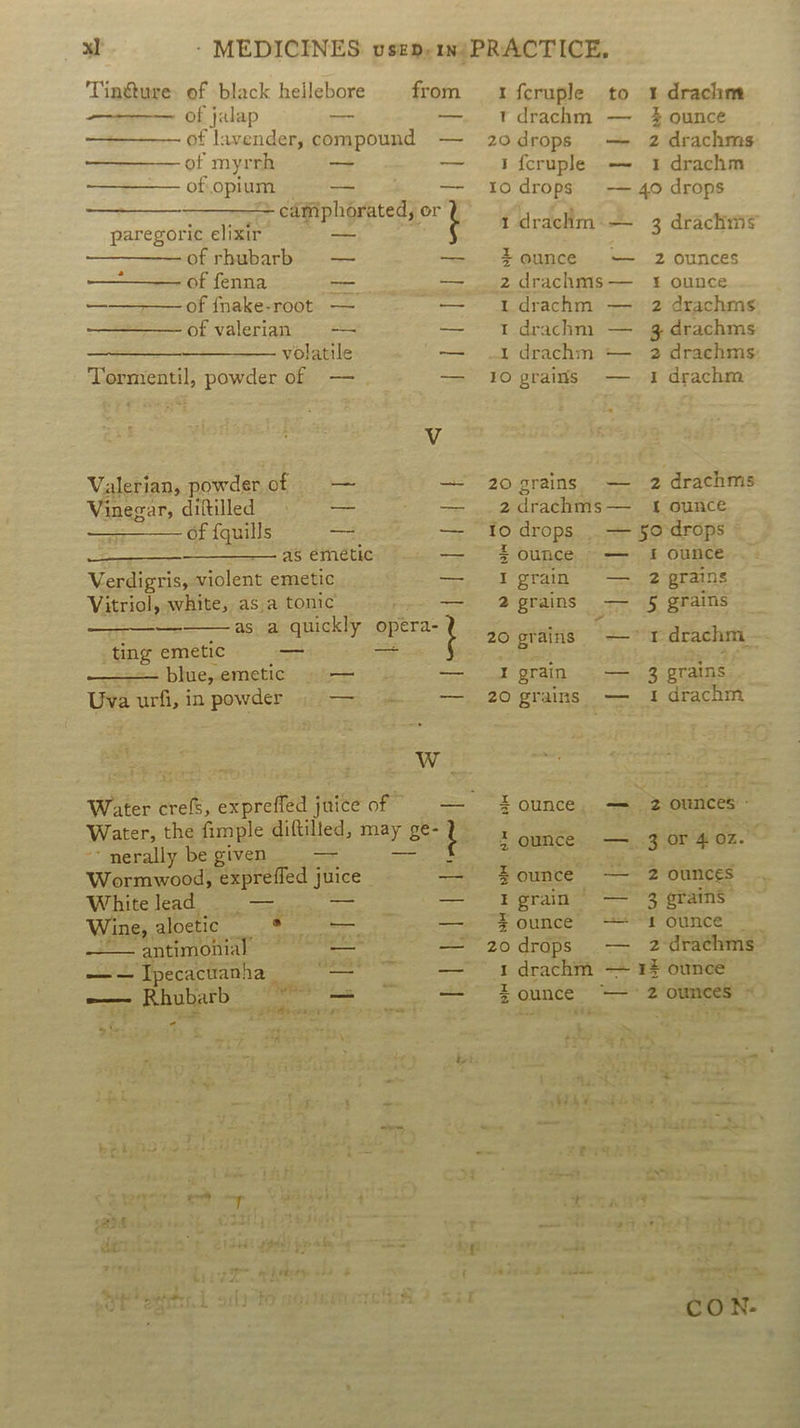 xl MEDICINES USED IN PRACTICE.
Tincture of black hellebore from 1 ſcruple to 1 drachm
——— of jalap — — 1 drachm — ½ ounce
——— of lavender, compound — 20 drops — 2 drachms
——— of myrrh — — 1 ſcruple — 1 drachm
——— of opium — — 10 drops — 40 drops
——— camphorated, or } 1 drachm — 3 drachms
paregoric elixir —
——— of rhubarb — — ½ ounce — 2 ounces
——— of ſenna — — 2 drachms — 1 ounce
——— of ſnake-root — — 1 drachm — 2 drachms
——— of valerian — — 1 drachm — 3 drachms
——— volatile — 1 drachm — 2 drachms
Tormentil, powder of — — 10 grains — 1 drachm
V
Valerian, powder of — — 20 grains — 2 drachms
Vinegar, diſtilled — — 2 drachms — 1 ounce
——— of ſquills — — 10 drops — 50 drops
——— as emetic — ½ ounce — 1 ounce
Verdigris, violent emetic — 1 grain — 2 grains
Vitriol, white, as a tonic — 2 grains — 5 grains
——— as a quickly opera- } 20 grains — 1 drachm
ting emetic — —
——— blue, emetic — — 1 grain — 3 grains
Uva urſi, in powder — — 20 grains — 1 drachm
W
Water creſs, expreſſed juice of — ½ ounce — 2 ounces
Water, the ſimple diſtilled, may ge- } ½ ounce — 3 or 4 oz.
nerally be given — —
Wormwood, expreſſed juice — ½ ounce — 2 ounces
White lead — — — 1 grain — 3 grains
Wine, aloetic — — ½ ounce — 1 ounce
—— antimonial — — 20 drops — 2 drachms
—— Ipecacuanha — — 1 drachm — 1½ ounce
—— Rhubarb — — ½ ounce — 2 ounces
CON-